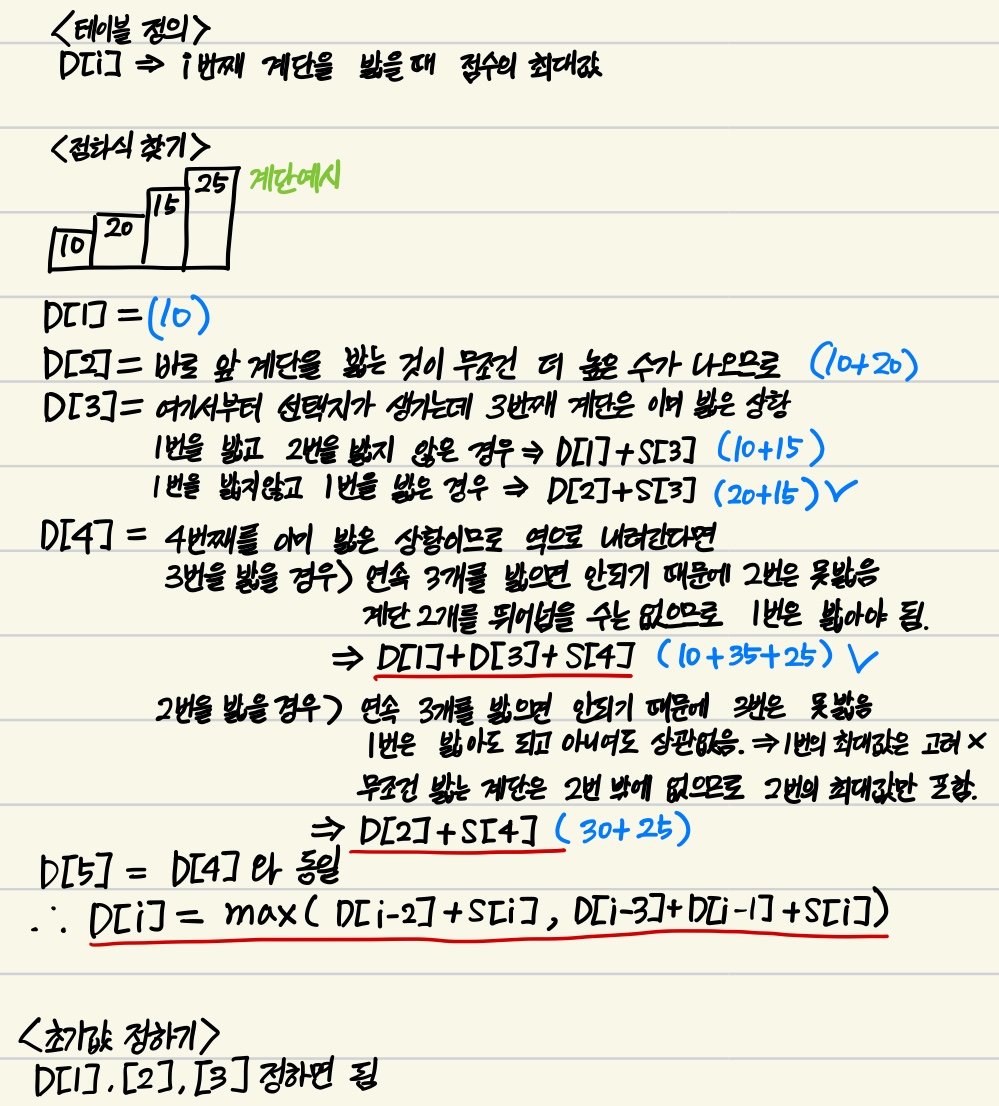 <테이블 정의>
D[i] ⇒ i번째 계단을 밟을 때 점수의 최대값
<점화식 찾기>
10 20 15 25 계단예시
D[1] = (10)
D[2] = 바로 앞 계단을 밟는 것이 무조건 더 높은 수가 나오므로 (10+20)
D[3] = 여기서부터 선택지가 생기는데 3번째 계단은 이미 밟은 상황
1번을 밟고 2번을 밟지 않은 경우 ⇒ D[1]+S[3] (10+15)
1번을 밟지않고 1번을 밟은 경우 ⇒ D[2]+S[3] (20+15) ✓
D[4] = 4번째를 이미 밟은 상황이므로 역으로 내려간다면
3번을 밟을 경우> 연속 3개를 밟으면 안되기 때문에 2번은 못밟음
계단 2개를 뛰어넘을 수는 없으므로 1번은 밟아야 됨.
⇒ D[1]+D[3]+S[4] (10+35+25) ✓
2번을 밟을 경우> 연속 3개를 밟으면 안되기 때문에 3번은 못밟음
1번은 밟아도 되고 아니여도 상관없음. ⇒ 1번의 최대값은 고려 ×
무조건 밟는 계단은 2번 밖에 없으므로 2번의 최대값만 포함.
⇒ D[2]+S[4] (30+25)
D[5] = D[4]와 동일
∴ D[i] = max( D[i-2]+S[i], D[i-3]+D[i-1]+S[i])
<초기값 정하기>
D[1], [2], [3] 정하면 됨